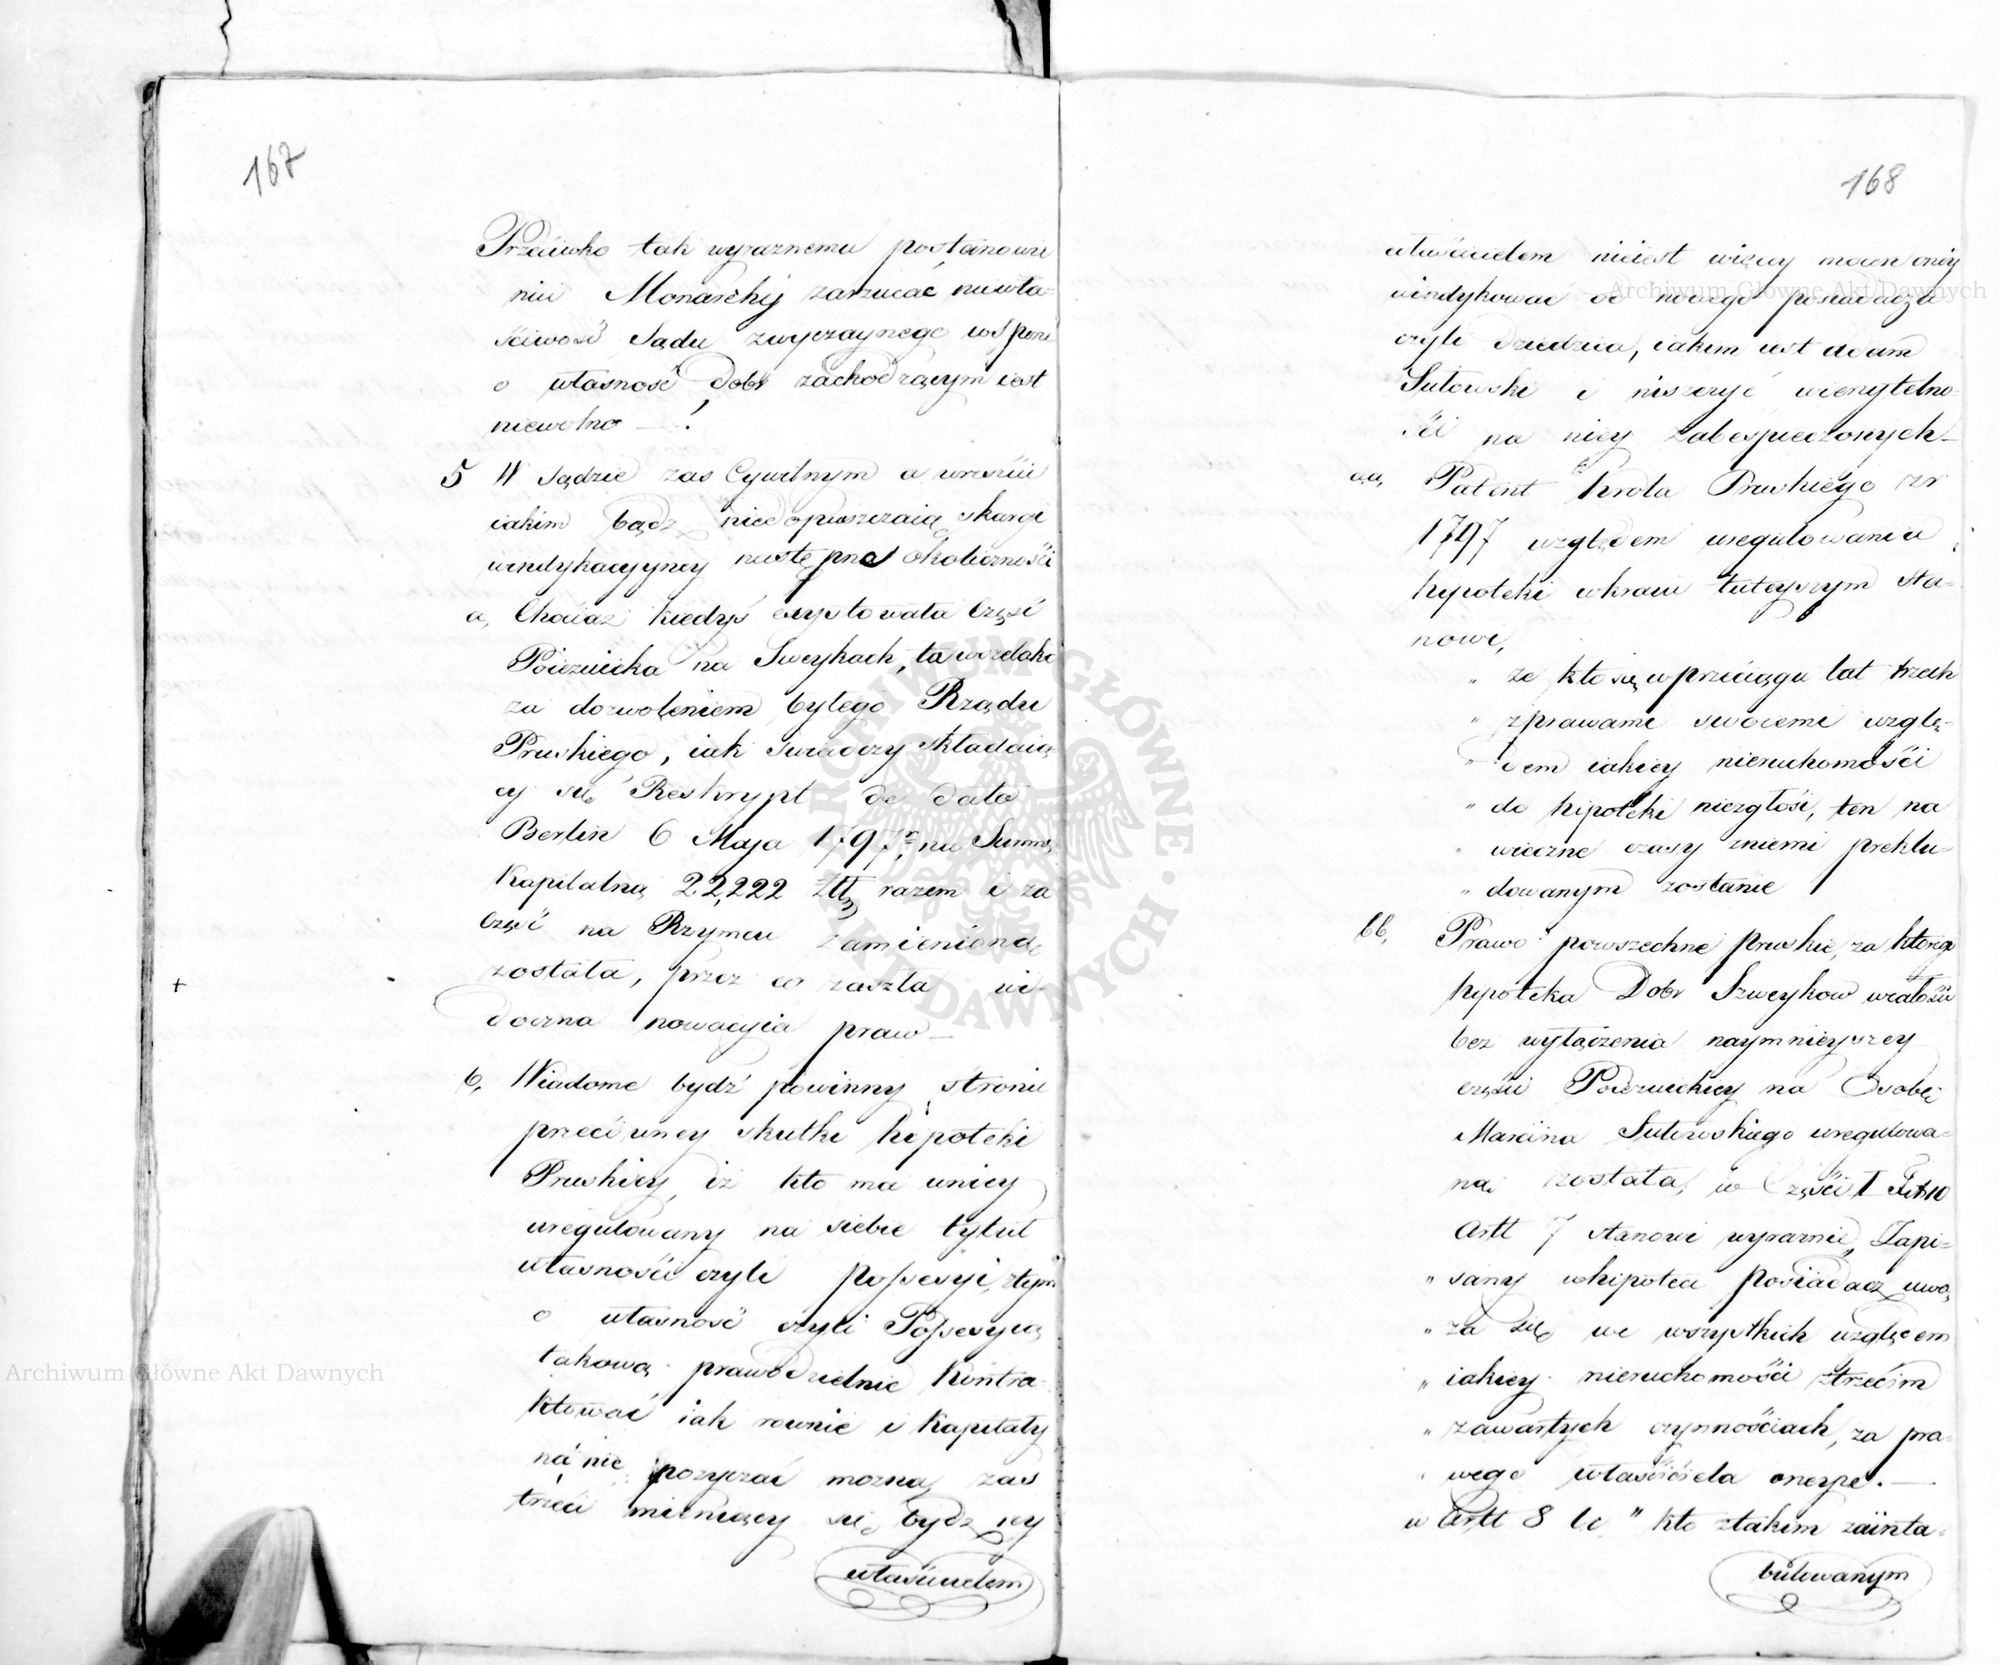 167
Przeciwko tak wyraznemu postanowie
niu Monarchij zarzucać niewła-
ściwość Sądu zwyczaynego w Sporze
o własność Dobr zachodzącym iest
niewolno — !
5 W Sądzie zas Cywilnym a wreście
iakim bądz niedopuszczaią skargi
windykacyyney następne okoliczności
a, Chociaz kiedyś exystowała Część
Poiezuicka na Sweykach, ta wszelako
za dozwoleniem byłego Rządu
Pruskiego, iak swiadczy składaią
cy się Reskrypt de dato
Berlin 6 Maja 1797 r. na Summę
Kapitalną 22,222 Złł razem i za
Część na Rzymcu zamienioną
została, przez co zaszła wi-
doczna nowacyia praw —
b, Wiadome bydź powinny stronie
przeciwney skutki hipoteki
Pruskiey, iż kto ma w niey
uregulowany na siebie tytuł
własności czyli possesyi, z tym
o własność czyli Possesyią
takową prawodzielnie Kontra-
ktować iak rownie i Kapitały
na nie pozyczać mozna, zas
trzeci mieniący się bydz iey
właścicielem
168
właścicielem nieiest więcey mocen oney
windykować od nowego posiadacza
czyli dziedzica, iakim iest Adam
Sutowski i niszczyć wierzytelno-
ści na niey zabespieczonych —
aa, Patent Krola Pruskiego z r
1797 względem uregulowania
hypoteki w kraiu tuteyszym sta-
nowi,
„ ze kto się w przeciągu lat trzech
„ z prawami swoiemi wzglę-
„ dem iakiey nieruchomości
„ do hipoteki niezgłosi, ten na
„ wieczne czasy z niemi preklu-
„ dowanym zostanie
bb, Prawo powszechne pruskie, za ktorego
hypoteka Dobr Szweykow w całości
bez wyłączenia naymnieyszey
części Poiezuickiey na Osobę
Marcina Sutowskiego uregulowa-
ną została, w Części I Tit 10
Artt 7 stanowi wyraznie, Zapi-
„ sany w hipotece posiadacz uwa
„ za się we wszystkich względem
„ iakiey nieruchomości z trzecim
„ zawartych czynnościach, za pra-
„ wego właściciela oneyze. —
w Artt 8 l.c. " Kto z takim zainta-
bulowanym
Archiwum Główne Akt Dawnych
Archiwum Główne Akt Dawnych
ARCHIWUM GŁÓWNE · AKT DAWNYCH ·